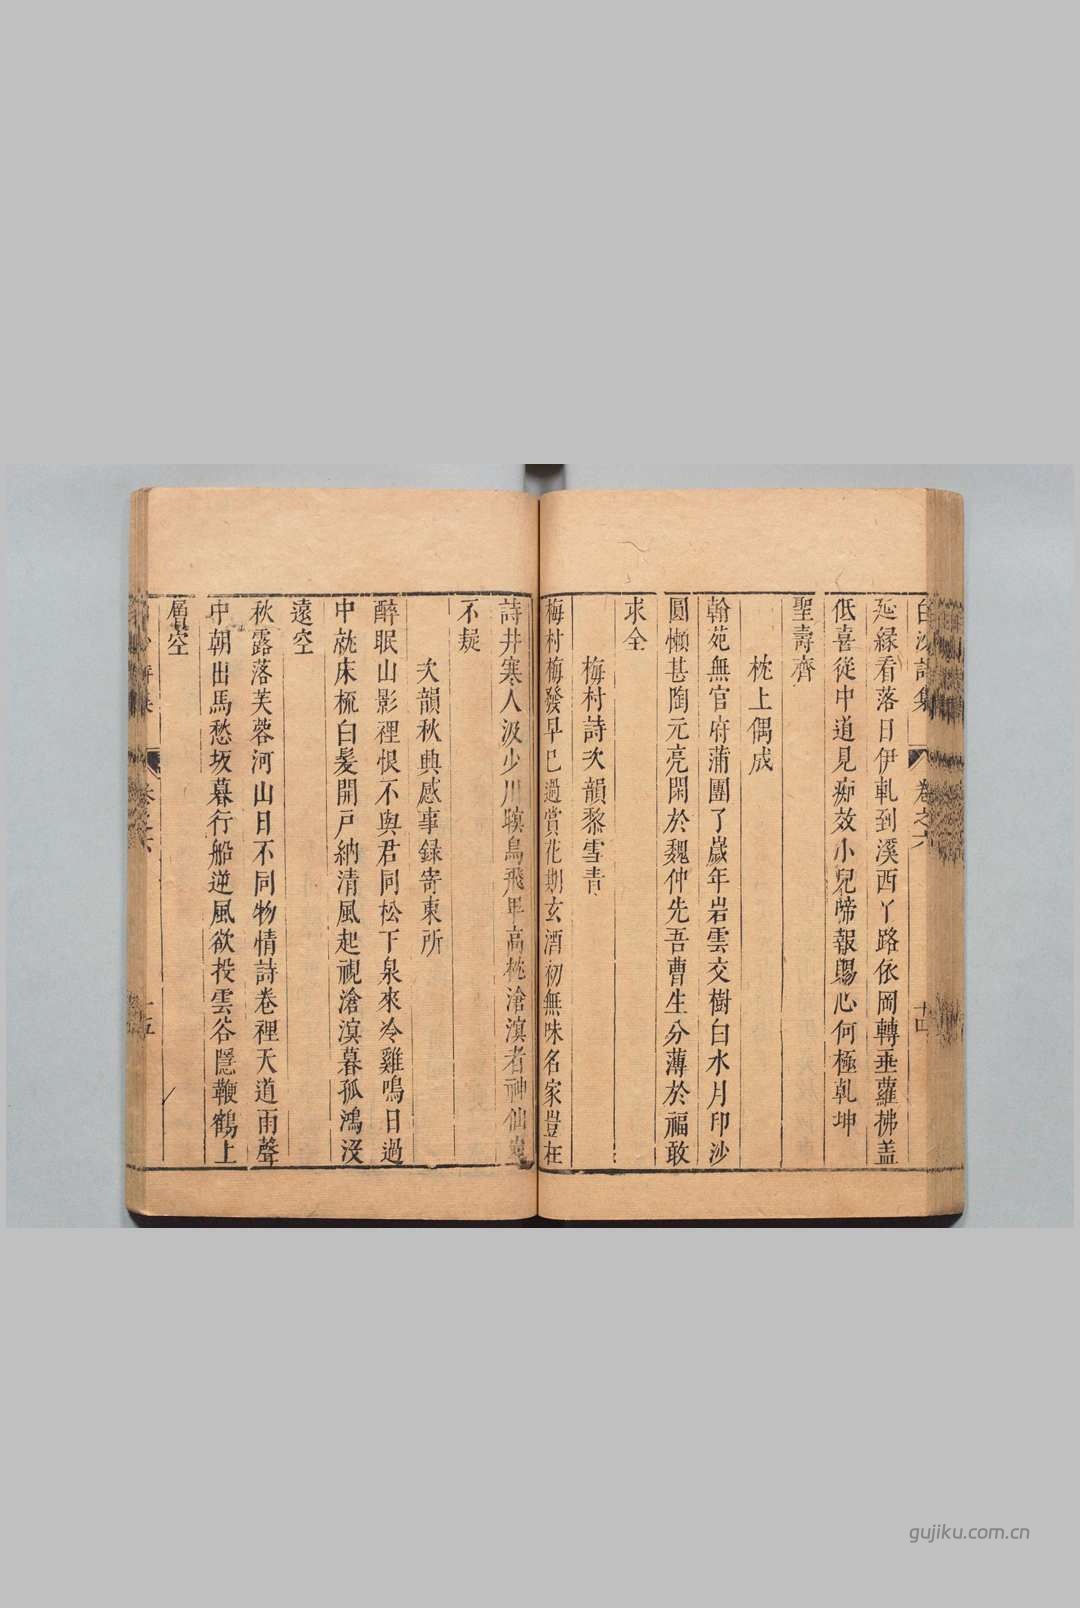 白沙詩集 卷之六 十四
延緣看落日伊軋到溪西丫路依岡轉垂蘿拂盖
低喜從中道見痴效小兒啼報賜心何極乾坤
聖壽齊
枕上偶成
翰苑無官府蒲團了歲年岩雲交樹白水月印沙
圓懶甚陶元亮閑於魏仲先吾曹生分薄於福敢
求全
梅村詩次韻黎雪青
梅村梅發早巳過賞花期玄酒初無味名家豈在
詩井寒人汲少川暝鳥飛 高枕滄溟者神仙
不疑
次韻秋興感事録寄東所
醉眠山影裡恨不與君同松下泉來冷雞鳴日過
中就床梳白髮開戸納清風起視滄溟暮孤鴻没
遠空
秋露落芙蓉河山日不同物情詩卷裡天道雨聲
中朝出馬愁坂暮行船逆風欲投雲谷隱鞭鶴上
層空
卷之六 十五
gujiku.com.cn